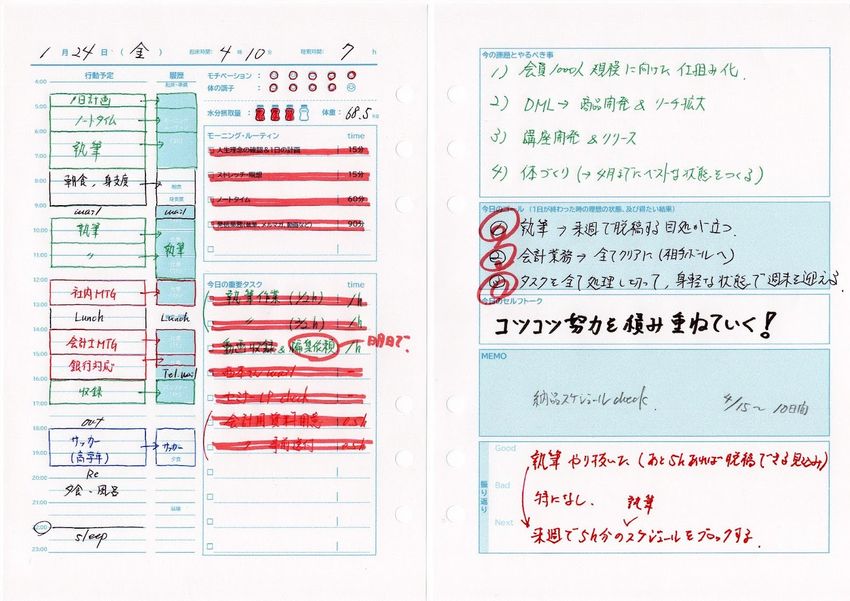 1月24日(金) 起床時間: 4時10分 睡眠時間: 7h
行動予定 履歴
4:00
1日計画
5:00
ノートタイム
6:00
執筆
7:00
8:00
朝食、身支度
9:00
mail mail
10:00
執筆 執筆
11:00
〃
12:00
社内MTG
13:00
Lunch Lunch
14:00
会計士MTG
15:00
銀行対応
Tel.mail
16:00
収録
17:00
out
18:00
サッカー サッカー
(高学年) 夕食
19:00
Re
20:00
夕食・風呂
21:00
22:00
sleep
23:00
モチベーション:
体の調子:
水分摂取量: 体重: 68.5kg
モーニング・ルーティン time
人生理念の確認&1日の計画 15分
ストレッチ・瞑想 15分
ノートタイム 60分
90分
今日の重要タスク time
執筆作業 (1/2h) 1h
〃 (2/2h) 1h
動画収録 & 編集依頼 1h 明日で、
mail
セミナーLP check
会計用資料用意
事前送付
今の課題とやるべき事
1) 会員1000人規模に向けた仕組み化
2) DML→商品開発&リーチ拡大
3) 講座開発&リリース
4) 体づくり(→4月までにベストな状態をつくる)
今日のゴール(1日が終わった時の理想の状態、及び得たい結果)
① 執筆→来週で脱稿する目処が立つ.
② 会計業務→全てクリアに(相手ボールへ)
③ タスクを全て処理し切って、身軽な状態で週末を迎える.
今日のセルフトーク
コツコツ努力を積み重ねていく!
MEMO
納品スケジュールcheck. 4/15〜10日間
振り返り
Good
執筆やり抜いた(あと5hあれば脱稿できる見込み)
Bad
特になし. 執筆
Next
来週で5h分のスケジュールをブロックする.